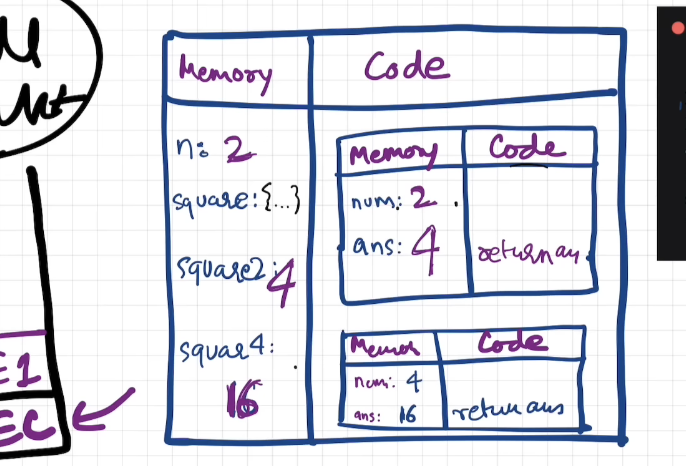 Memory Code
n: 2
square: {...}
square2: 4
squar4:
16
Memory Code
num: 2
ans: 4 return an
Memor Code
num: 4
ans: 16 return ans
E1
EC